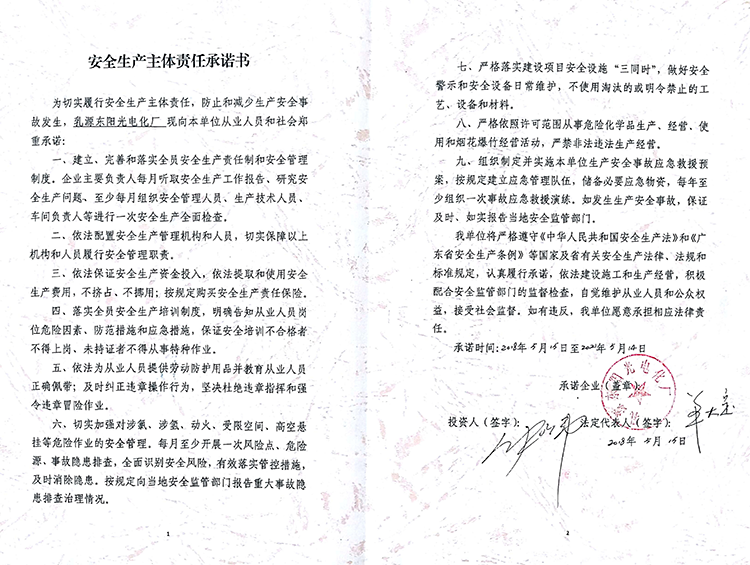 安全生产主体责任承诺书
为切实履行安全生产主体责任，防止和减少生产安全事
故发生，乳源东阳光电化厂 现向本单位从业人员和社会郑
重承诺：
一、建立、完善和落实全员安全生产责任制和安全管理
制度。企业主要负责人每月听取安全生产工作报告、研究安
全生产问题、至少每月组织安全管理人员、生产技术人员、
车间负责人等进行一次安全生产全面检查。
二、依法配置安全生产管理机构和人员，切实保障以上
机构和人员履行安全管理职责。
三、依法保证安全生产资金投入，依法提取和使用安全
生产费用，不挤占、不挪用；按规定购买安全生产责任保险。
四、落实全员安全生产培训制度，明确告知从业人员岗
位危险因素、防范措施和应急措施，保证安全培训不合格者
不得上岗、未持证者不得从事特种作业。
五、依法为从业人员提供劳动防护用品并教育从业人员
正确佩带；及时纠正违章操作行为，坚决杜绝违章指挥和强
令违章冒险作业。
六、切实加强对涉氯、涉氢、动火、受限空间、高空悬
挂等危险作业的安全管理。每月至少开展一次风险点、危险
源、事故隐患排查，全面识别安全风险，有效落实管控措施，
及时消除隐患。按规定向当地安全监管部门报告重大事故隐
患排查治理情况。
1
七、严格落实建设项目安全设施“三同时”，做好安全
警示和安全设备日常维护，不使用淘汰的或明令禁止的工
艺、设备和材料。
八、严格依照许可范围从事危险化学品生产、经营、使
用和烟花爆竹经营活动，严禁非法违法生产经营。
九、组织制定并实施本单位生产安全事故应急救援预
案，按规定建立应急管理队伍，储备必要应急物资，每年至
少组织一次事故应急救援演练。如发生生产安全事故，保证
及时、如实报告当地安全监管部门。
我单位将严格遵守《中华人民共和国安全生产法》和《广
东省安全生产条例》等国家及省有关安全生产法律、法规和
标准规定，认真履行承诺，依法建设施工和生产经营，积极
配合安全监管部门的监督检查，自觉维护从业人员和公众权
益，接受社会监督。如有违反，我单位愿意承担相应法律责
任。
承诺时间：2018年5月15日至2021年5月14日
承诺企业（盖章）：
阳光电化厂
投资人（签字）： 法定代表人（签字）：
2018年 5月 15日
2